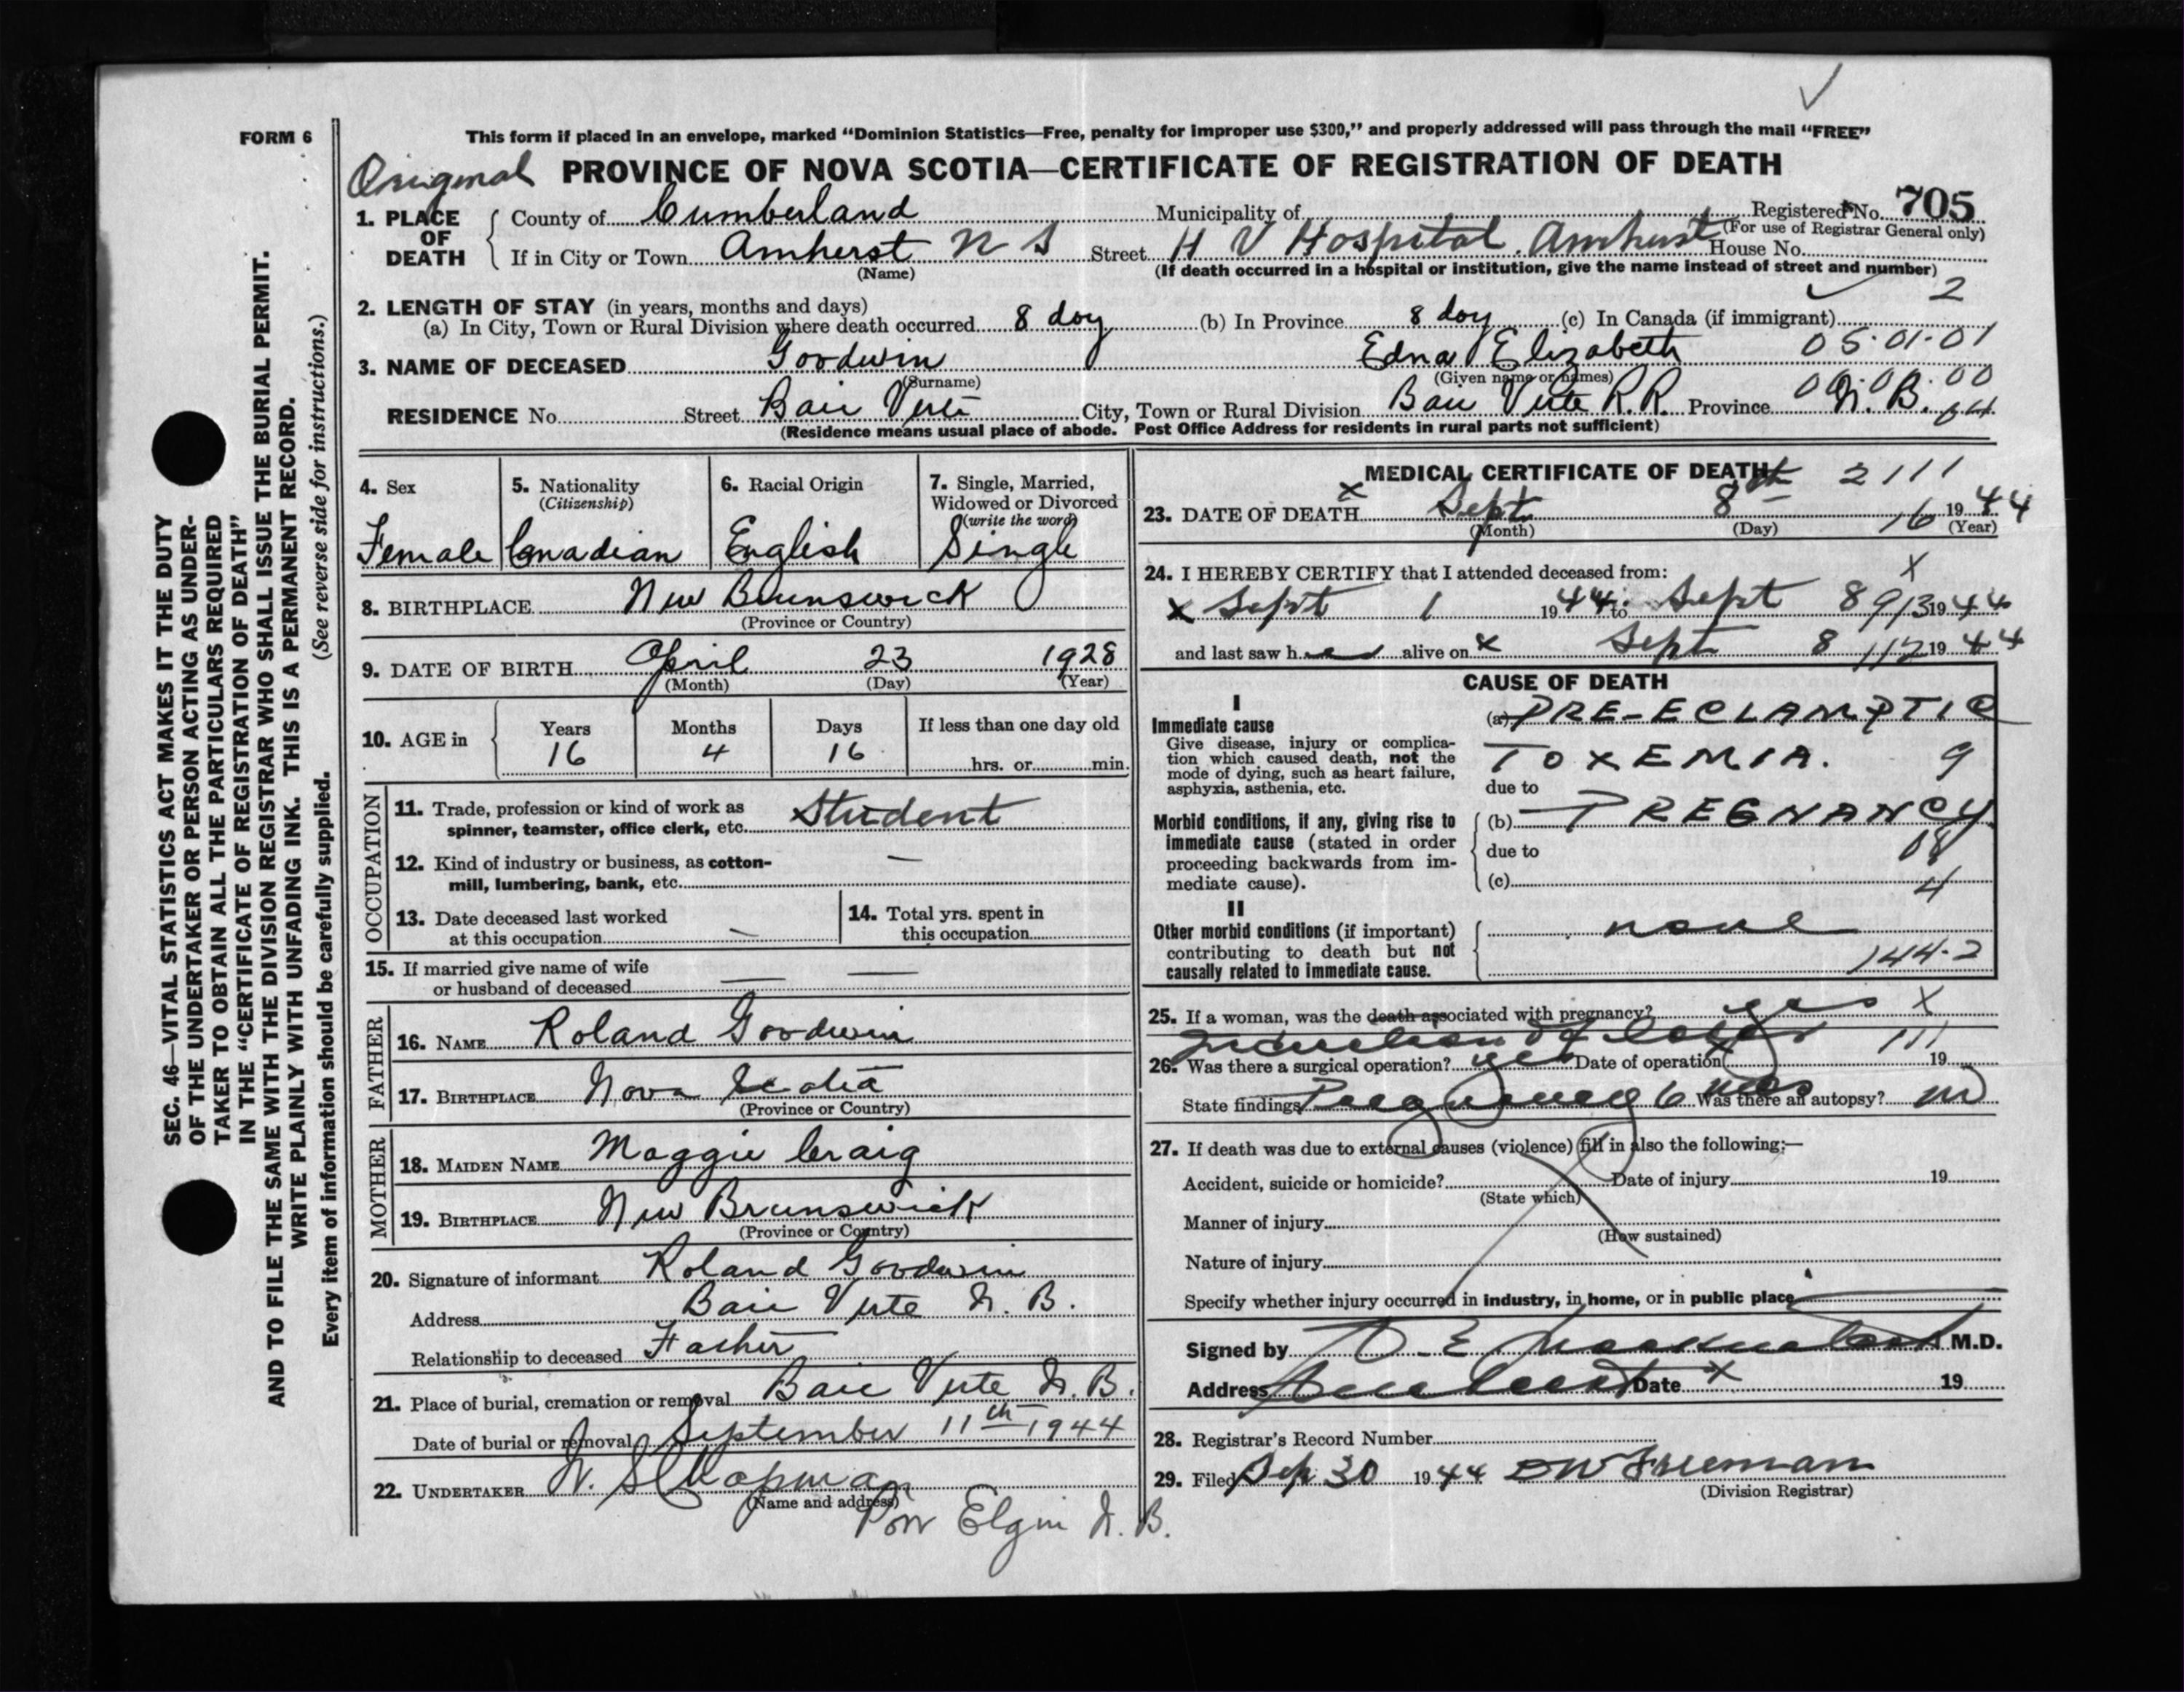 FORM 6
This form if placed in an envelope, marked "Dominion Statistics—Free, penalty for improper use $300," and properly addressed will pass through the mail "FREE"
Original PROVINCE OF NOVA SCOTIA—CERTIFICATE OF REGISTRATION OF DEATH
1. PLACE OF DEATH County of Cumberland Municipality of Registered No. 705
(For use of Registrar General only)
If in City or Town Amherst N S Street H V Hospital. Amherst House No.
(Name) (If death occurred in a hospital or institution, give the name instead of street and number)
2
2. LENGTH OF STAY (in years, months and days)
(a) In City, Town or Rural Division where death occurred 8 day (b) In Province 8 day (c) In Canada (if immigrant)
3. NAME OF DECEASED Goodwin Edna Elizabeth 05.01.01
(Surname) (Given name or names)
RESIDENCE No. Street Baie Verte City, Town or Rural Division Baie Verte R.R. Province N. B. 64
(Residence means usual place of abode. Post Office Address for residents in rural parts not sufficient)
SEC. 46—VITAL STATISTICS ACT MAKES IT THE DUTY
OF THE UNDERTAKER OR PERSON ACTING AS UNDER-
TAKER TO OBTAIN ALL THE PARTICULARS REQUIRED
IN THE "CERTIFICATE OF REGISTRATION OF DEATH"
AND TO FILE THE SAME WITH THE DIVISION REGISTRAR WHO SHALL ISSUE THE BURIAL PERMIT.
WRITE PLAINLY WITH UNFADING INK. THIS IS A PERMANENT RECORD.
Every item of information should be carefully supplied. (See reverse side for instructions.)
4. Sex
Female
5. Nationality
(Citizenship)
Canadian
6. Racial Origin
English
7. Single, Married,
Widowed or Divorced
(write the word)
Single
8. BIRTHPLACE New Brunswick
(Province or Country)
9. DATE OF BIRTH April 23 1928
(Month) (Day) (Year)
10. AGE in Years Months Days If less than one day old
16 4 16 hrs. or min.
OCCUPATION
11. Trade, profession or kind of work as
spinner, teamster, office clerk, etc. Student
12. Kind of industry or business, as cotton-
mill, lumbering, bank, etc. —
13. Date deceased last worked
at this occupation —
14. Total yrs. spent in
this occupation
15. If married give name of wife
or husband of deceased — —
FATHER
16. NAME Roland Goodwin
17. BIRTHPLACE Nova Scotia
(Province or Country)
MOTHER
18. MAIDEN NAME Maggie Craig
19. BIRTHPLACE New Brunswick
(Province or Country)
20. Signature of informant Roland Goodwin
Address Baie Verte N. B.
Relationship to deceased Father
21. Place of burial, cremation or removal Baie Verte N. B.
Date of burial or removal September 11th 1944
22. UNDERTAKER Chapman
(Name and address)
Port Elgin N. B.
MEDICAL CERTIFICATE OF DEATH 2111
23. DATE OF DEATH x Sept 8th 16 1944
(Month) (Day) (Year)
24. I HEREBY CERTIFY that I attended deceased from: x
x Sept 1 1944 to Sept 8 913 1944
and last saw her alive on x Sept 8 112 1944
CAUSE OF DEATH
I
Immediate cause
Give disease, injury or complica-
tion which caused death, not the
mode of dying, such as heart failure,
asphyxia, asthenia, etc.
(a) PRE-ECLAMPTIC
TOXEMIA. 9
due to
Morbid conditions, if any, giving rise to
immediate cause (stated in order
proceeding backwards from im-
mediate cause).
(b) PREGNANCY
due to
(c) 4
II
Other morbid conditions (if important)
contributing to death but not
causally related to immediate cause.
none
144-2
25. If a woman, was the death associated with pregnancy? yes x
Induction of labor 111
26. Was there a surgical operation? yes Date of operation x 19
State findings Pregnancy 6 mos Was there an autopsy? no
27. If death was due to external causes (violence) fill in also the following:—
Accident, suicide or homicide? Date of injury 19
(State which)
Manner of injury
(How sustained)
Nature of injury
Specify whether injury occurred in industry, in home, or in public place
Signed by M.D.
Address Amherst Date x 19
28. Registrar's Record Number
29. Filed Sep 30 1944 Freeman
(Division Registrar)